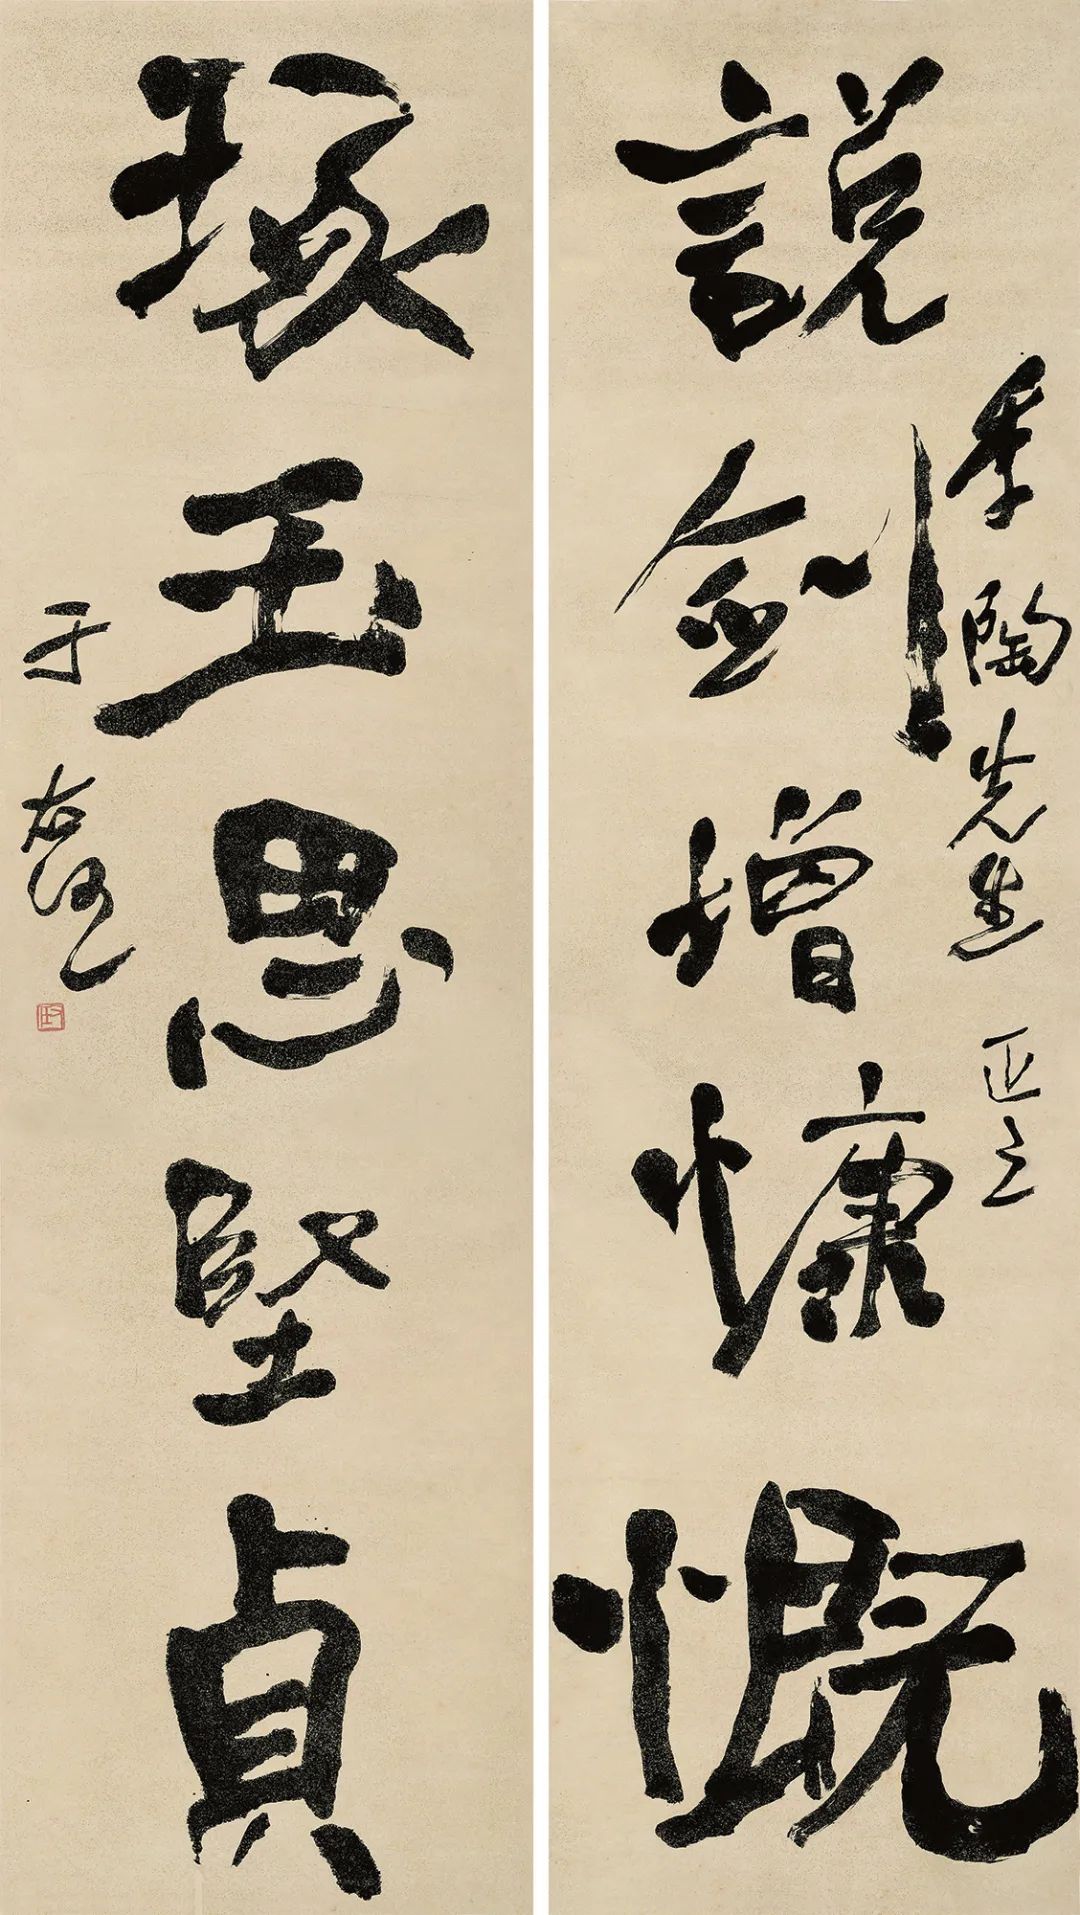 說劍增慷慨
季陶先生正之
琢玉思堅貞
于右任